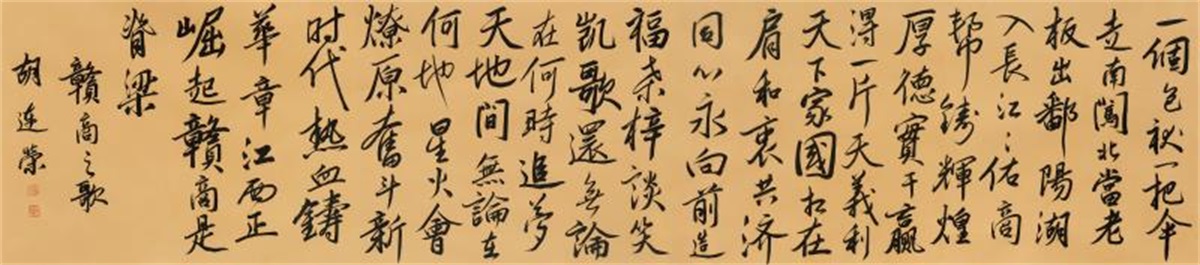 一個包袱一把伞
走南闖北當老
板出鄱陽湖
入長江江佑商
幫鑄輝煌
厚德實干贏
得一片天義利
天下家國扛在
肩和衷共济
同心永向前造
福桑梓談笑
凱歌還無論
在何時追夢
天地間無論在
何地星火會
燎原奮斗新
时代熱血鑄
華章江西正
崛起贛商是
脊梁
贛商之歌
胡连榮